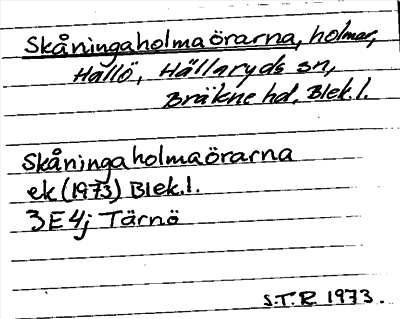 Skåningaholmaörarna, holmar,
Hallö, Hällaryds sn,
Bräkne hd, Blek. l.
Skåningaholmaörarna
ek (1973) Blek. l.
3E4j Tärnö
S.T.R. 1973.